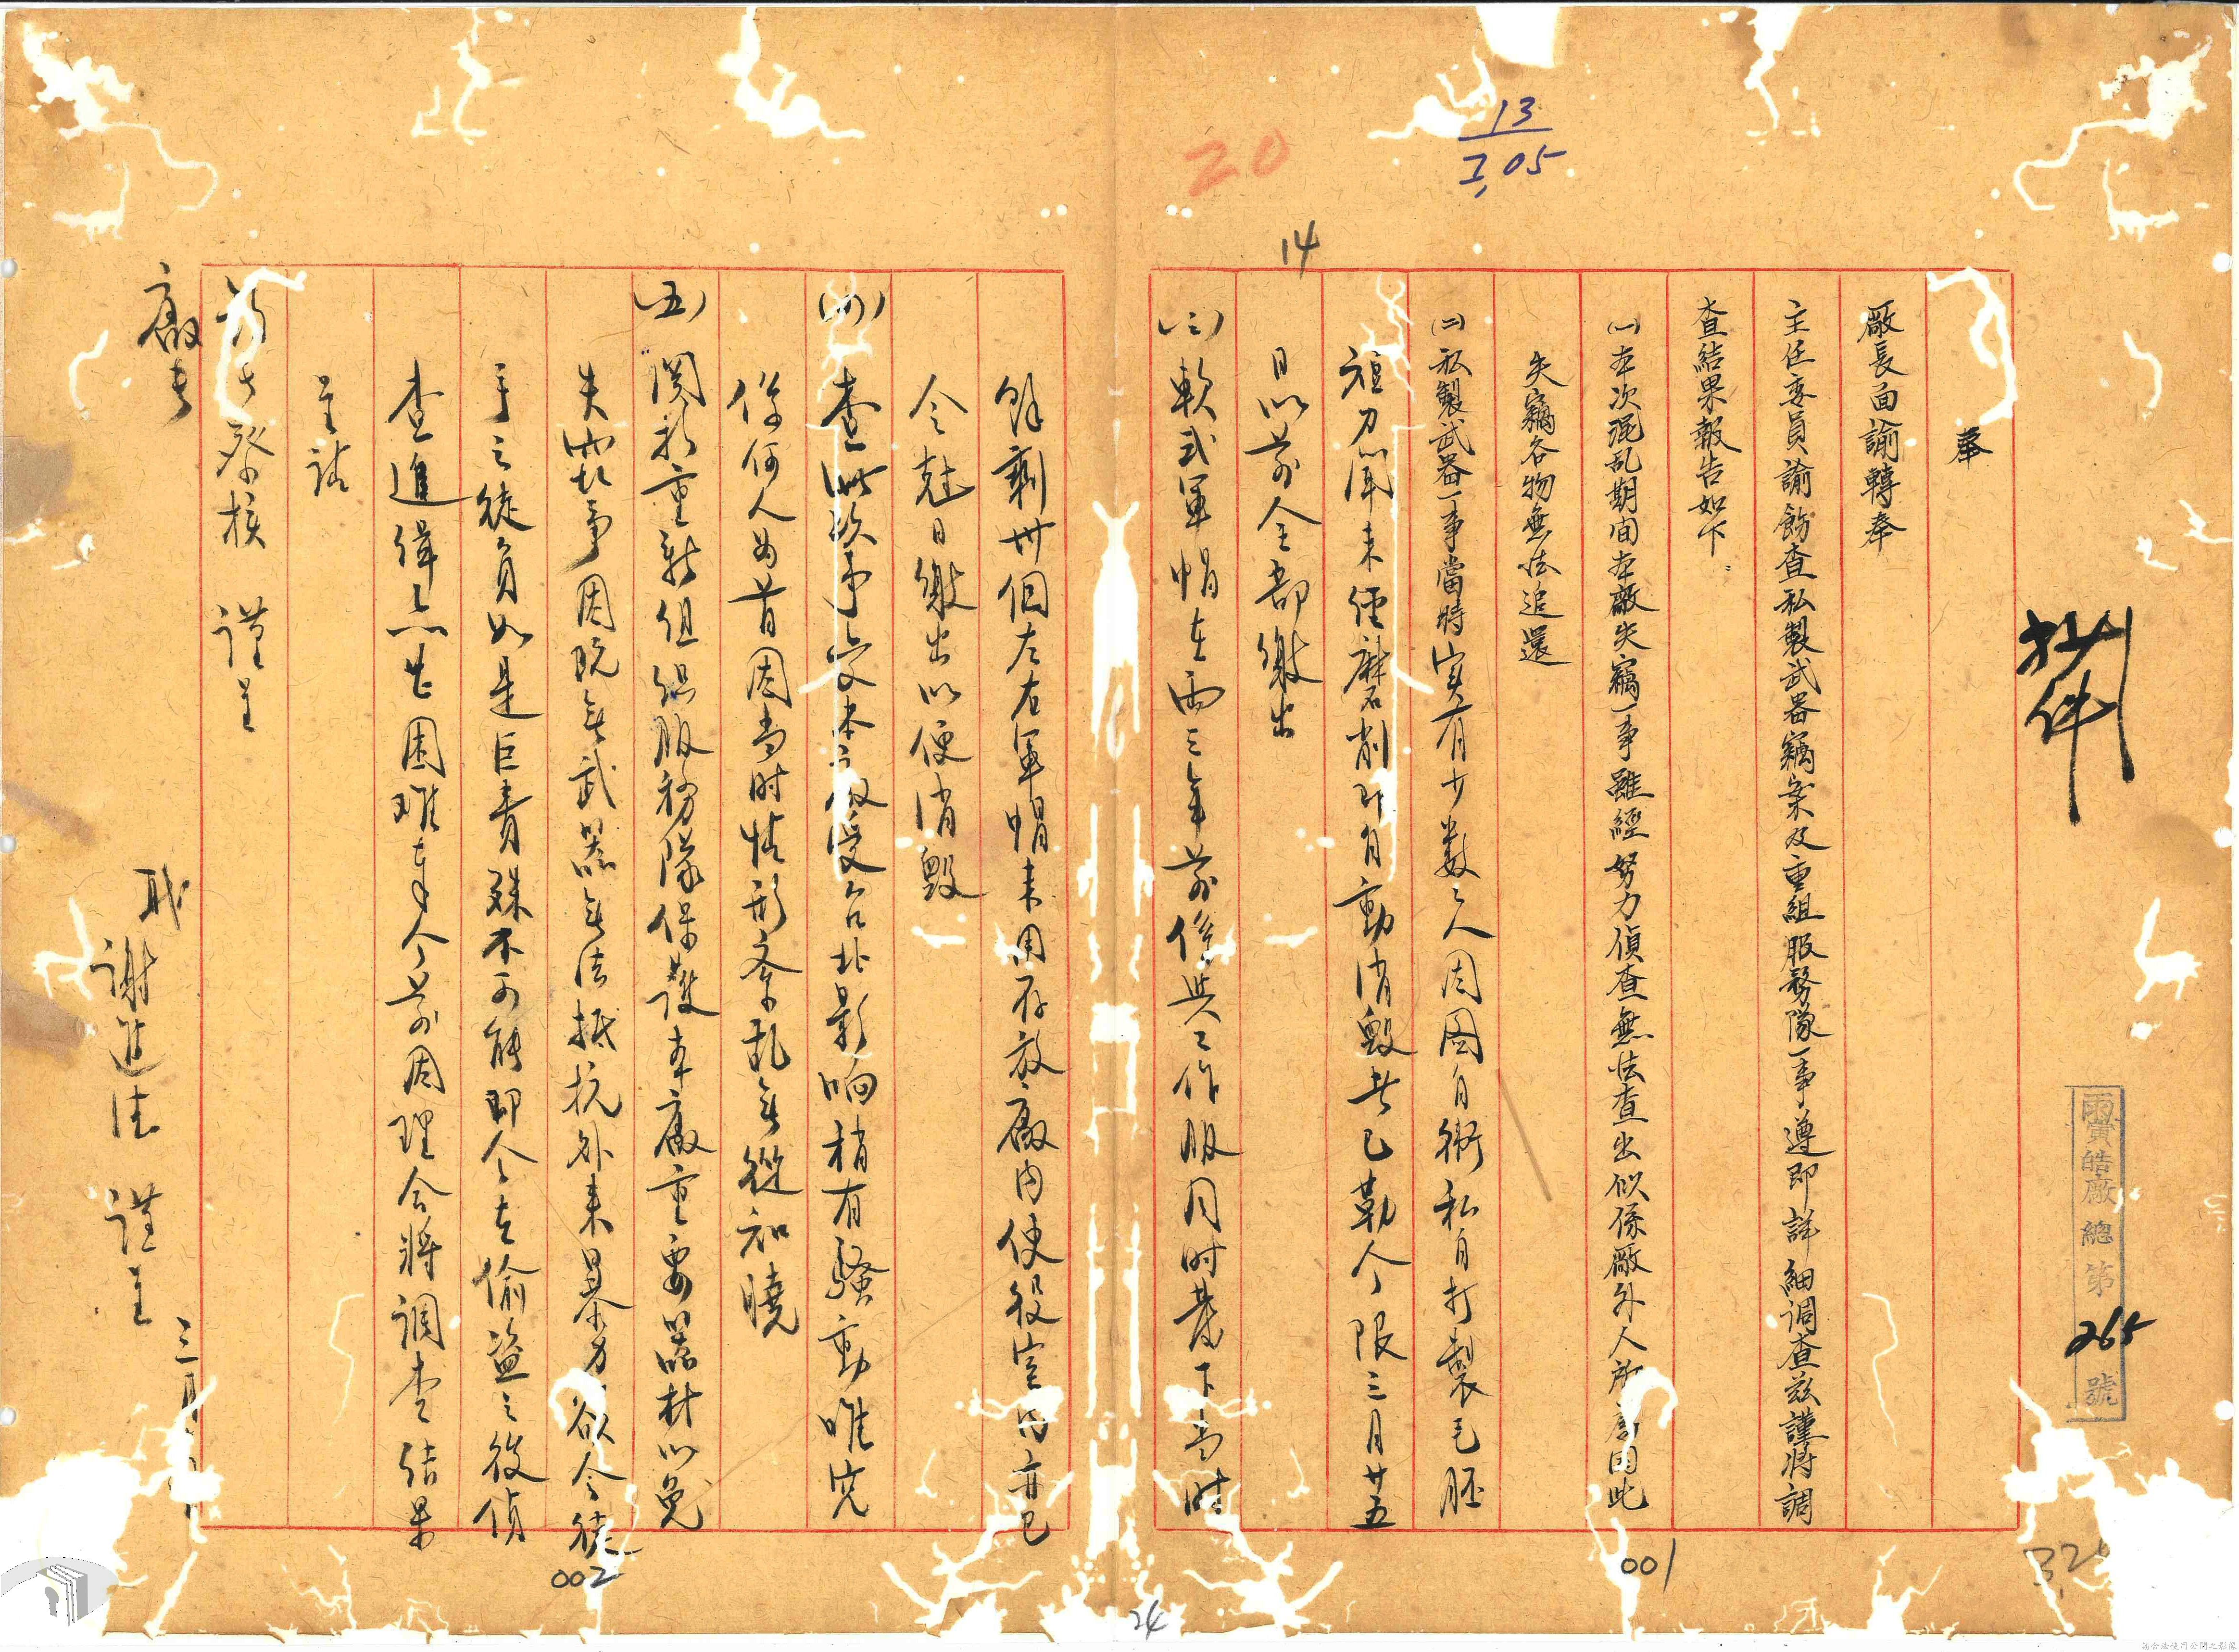 抄件
雨實皓廠總第265號
13
I,05
20
14
奉
廠長面諭轉奉
主任委員諭飭查私製武器竊案及重組服務隊一事遵即詳細調查茲謹將調
查結果報告如下
㈠本次混乱期间本廠失竊一事雖經努力偵查無法查出似係廠外人所為因此
失竊各物無法追還
㈡私製武器一事當時实有少数之人因图自衛私自打製毛胚
短刀闻未經磨削即自動消毀者已勒令限三月廿五
日以前全部繳出
㈢軟式軍帽在兩三年前係與工作服同时著下當時
餘剩卅個左右軍帽未用存放廠内使役室內亦已
令尅日繳出以便消毀
㈣查此次事变本厰受台北影响稍有騷動唯究
係何人为首因当时情形紊乱無從知曉
㈤関於重新组織服務隊保護本廠重要器材以免
失窃事因既無武器無法抵抗外来暴力欲令徒
手之徒負如是巨責殊不可能即令去偷盜之後偵
查進緝亦感困难奉令前因理合將調查结果
呈請
察核 謹呈
廠長
職 謝進法 謹呈
三月
001
002
24
請合法使用公開之影像